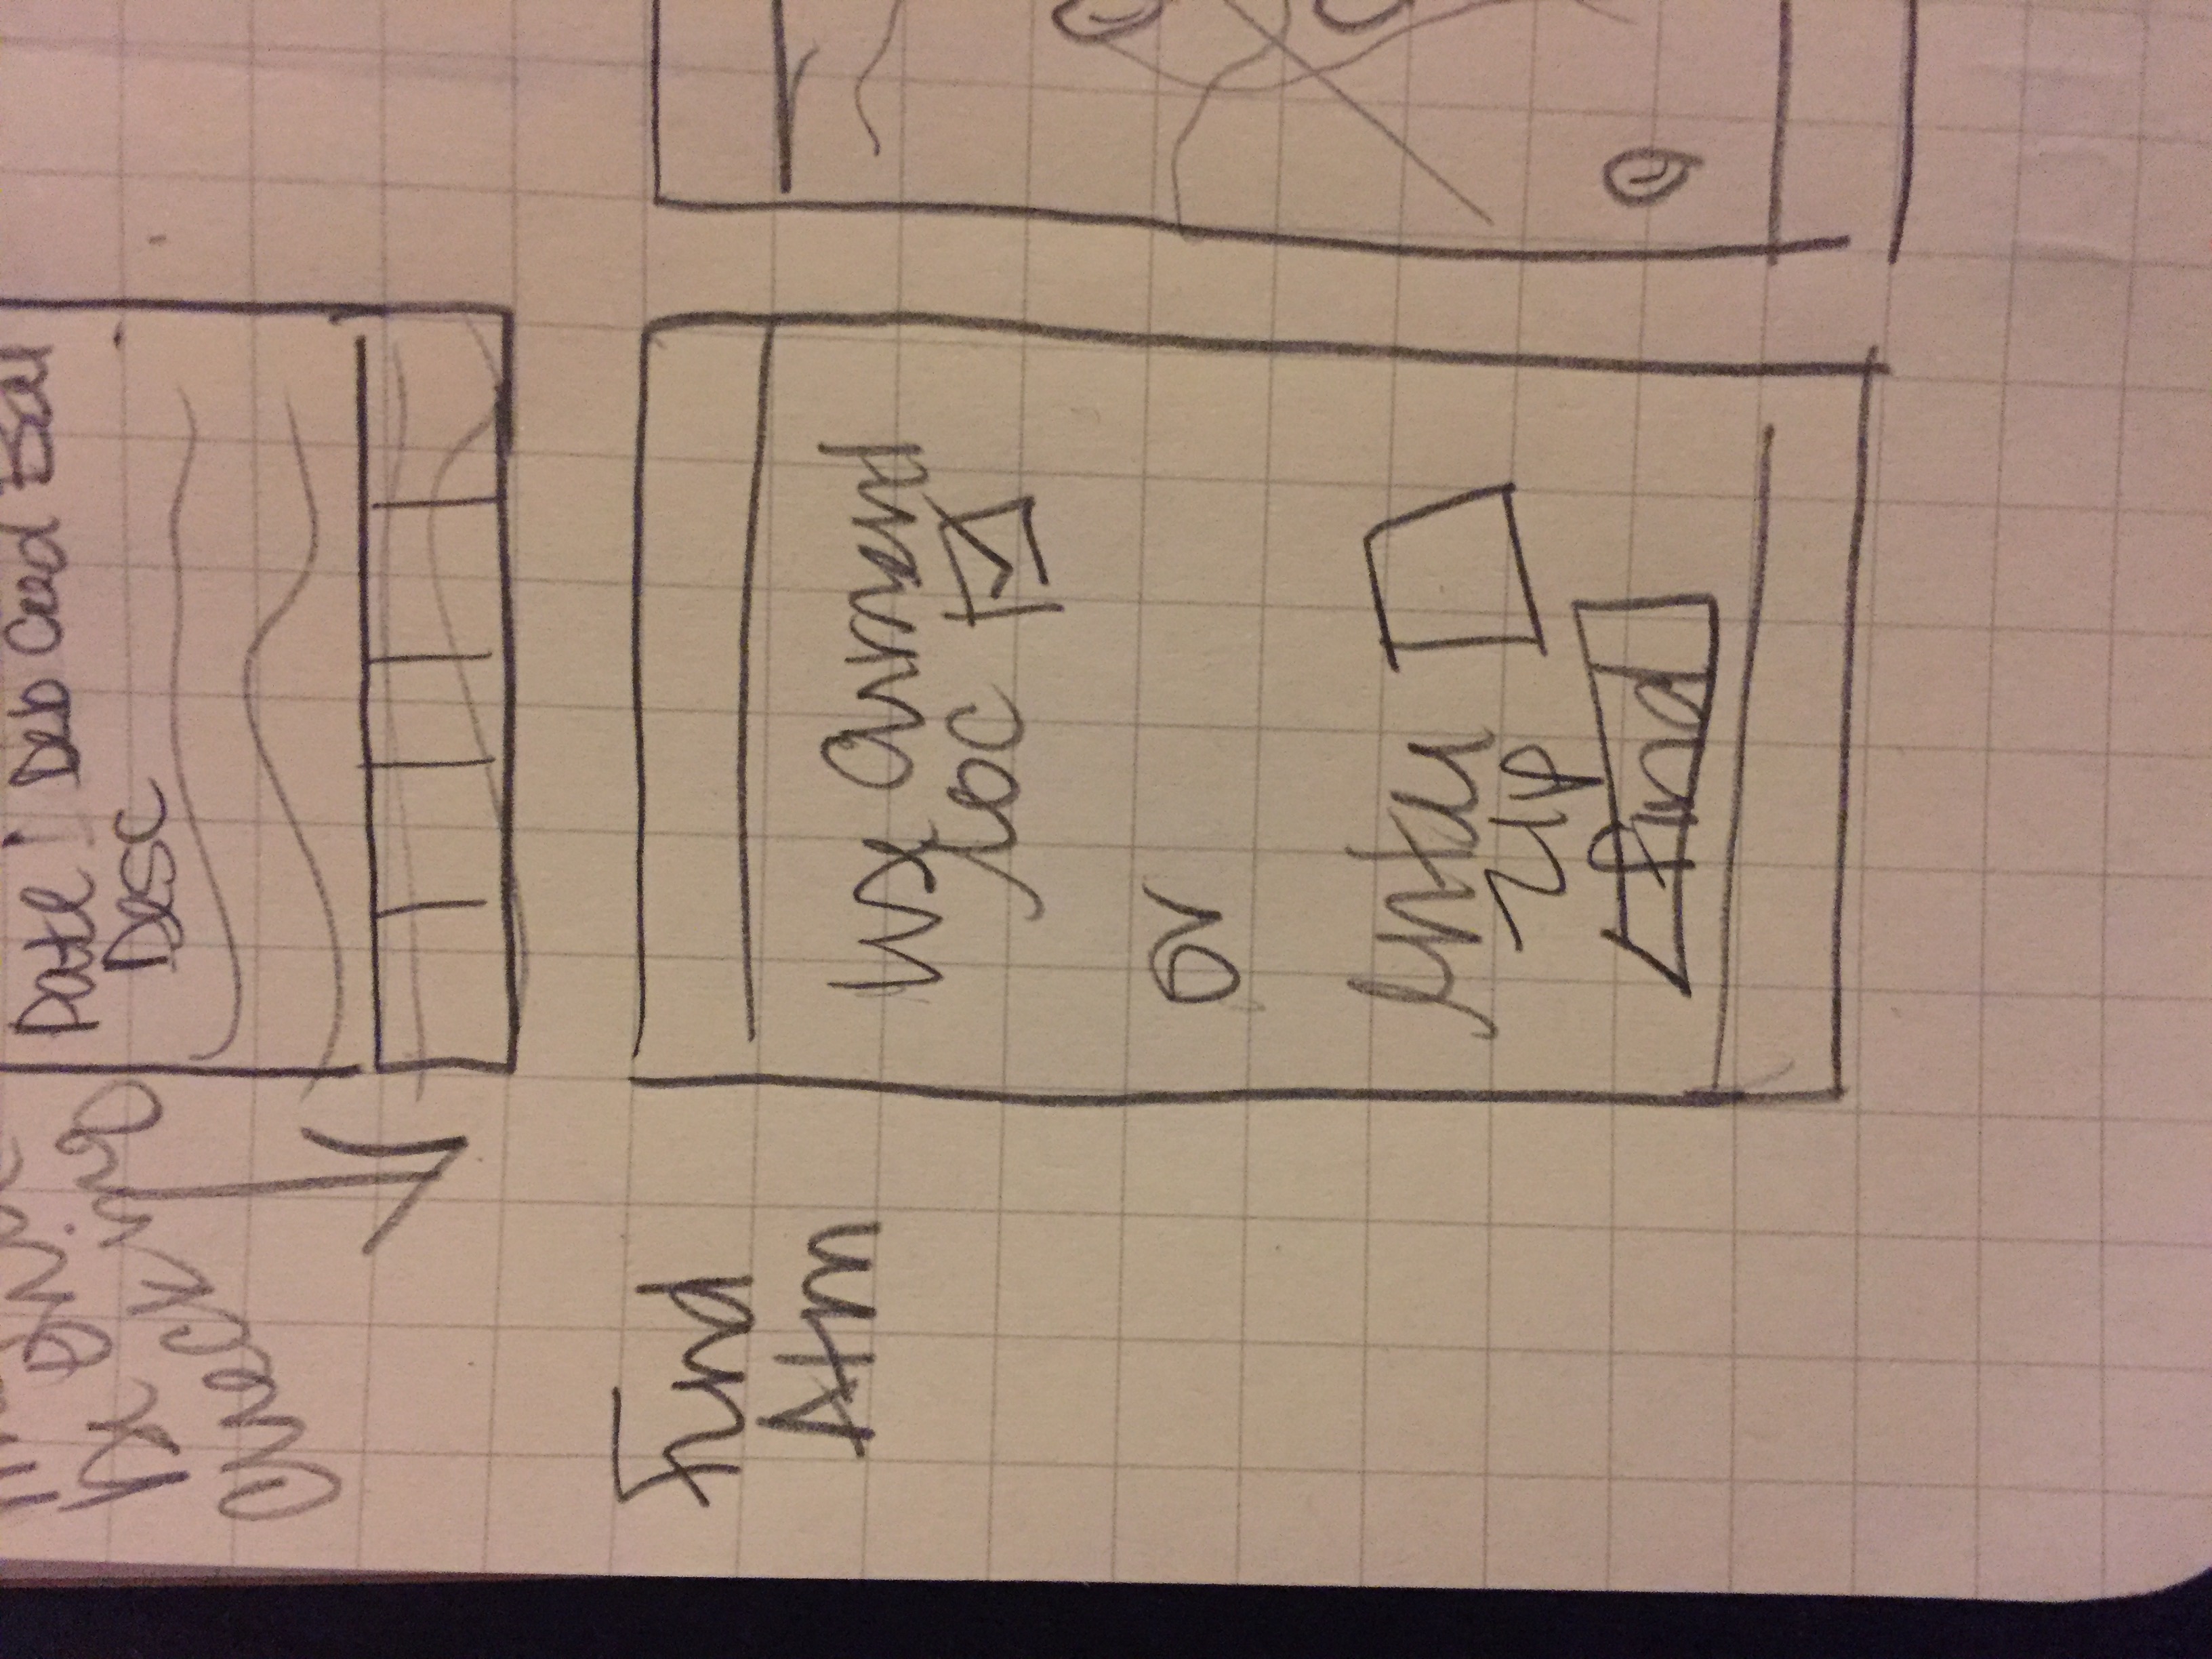 be
checking
Date Deb Cred Bal
Desc
Find
Atm
Use Current
loc
or
enter
Zip
find